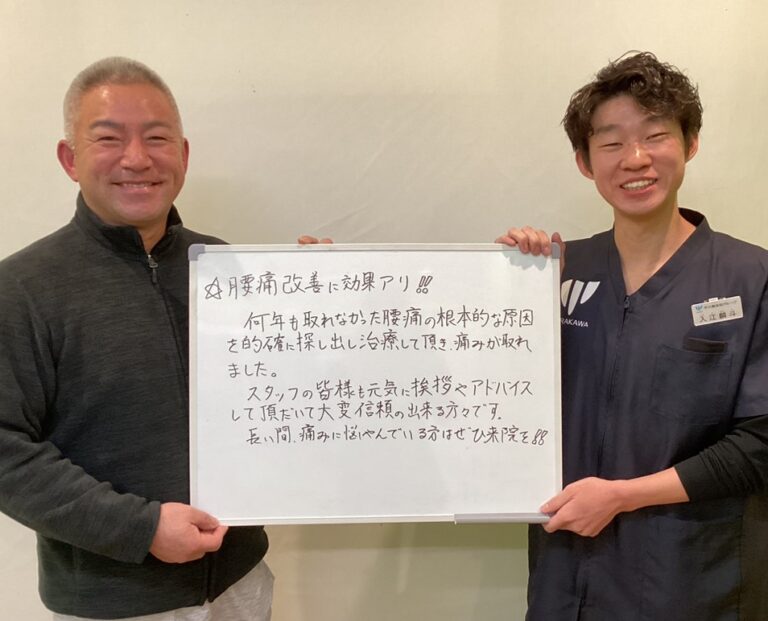 ☆腰痛改善に効果アリ!!
何年も取れなかった腰痛の根本的な原因
を的確に探し出し治療して頂き、痛みが取れ
ました。
スタッフの皆様も元気に挨拶やアドバイス
して頂だいて大変信頼の出来る方々です。
長い間、痛みに悩やんでいる方はぜひ来院を!!
RAKAWA